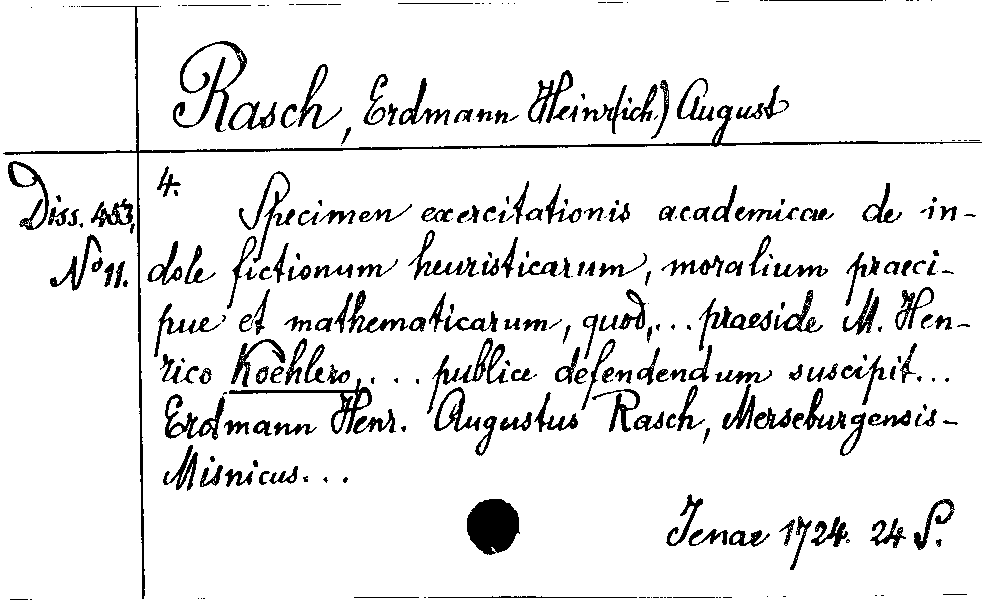 Rasch, Erdmann Heinr(ich.) August
Diss. 453,
No 11.
4.
Specimen exercitationis academicae de in-
dole fictionum heuristicarum, moralium praeci-
pue et mathematicarum, quod,... praeside M. Hen-
rico Koehlero,... publice defendendum suscipit...
Erdmann Henr. Augustus Rasch, Merseburgensis-
Misnicus...
Jenae 1724. 24 S.